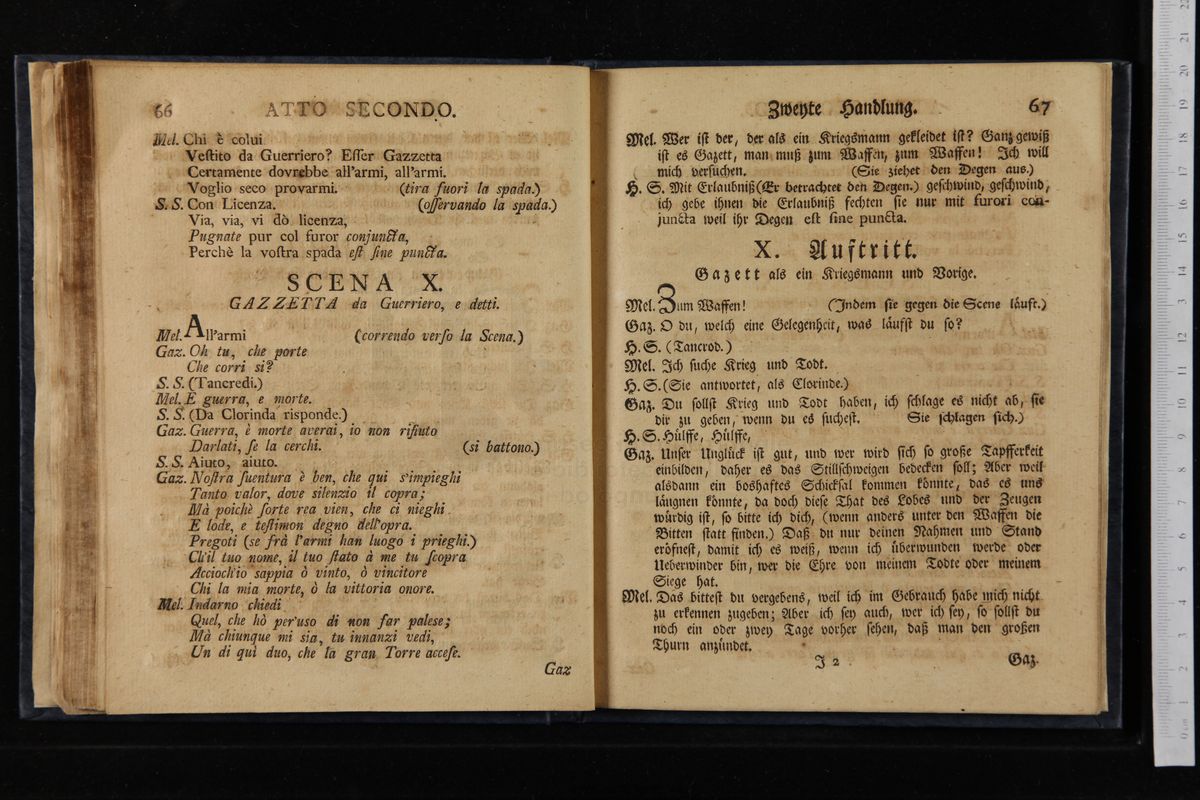 66 ATTO SECONDO.
Mel. Chi è colui
Veſtito da Guerriero? Eſſer Gazzetta
Certamente dovrebbe all'armi, all'armi.
Voglio seco provarmi. (tira fuori la spada.)
S. S. Con Licenza. (oſſervando la spada.)
Via, via, vi dò licenza,
Pugnate pur col furor conjuncta,
Perchè la voſtra spada eſt ſine puncta.
SCENA X.
GAZZETTA da Guerriero, e detti.
Mel. All'armi (correndo verſo la Scena.)
Gaz. Oh tu, che porte
Che corri si?
S. S. (Tancredi.)
Mel. E guerra, e morte.
S. S. (Da Clorinda risponde.)
Gaz. Guerra, è morte averai, io non rifiuto
Darlati, ſe la cerchi. (si battono.)
S. S. Aiuto, aiuto.
Gaz. Noſtra ſuentura è ben, che qui s'impieghi
Tanto valor, dove silenzio il copra;
Mà poichè ſorte rea vien, che ci nieghi
E lode, e teſtimon degno dell'opra.
Pregoti (se frà l'armi han luogo i prieghi.)
Ch'il tuo nome, il tuo ſtato à me tu ſcopra
Accioch'io sappia ò vinto, ò vincitore
Chi la mia morte, ò la vittoria onore.
Mel. Indarno chiedi
Quel, che hò per'uso di non far palese;
Mà chiunque mi sia, tu innanzi vedi,
Un di quì duo, che la gran Torre acceſe.
Gaz
Zweyte Handlung. 67
Mel. Wer iſt der, der als ein Kriegsmann gekleidet iſt? Ganz gewiß
iſt es Gazett, man muß zum Waffen, zum Waffen! Ich will
mich verſuchen. (Sie ziehet den Degen aus.)
H. S. Mit Erlaubniß (Er betrachtet den Degen.) geſchwind, geſchwind,
ich gebe ihnen die Erlaubniß fechten ſie nur mit furori con-
juncta weil ihr Degen eſt ſine puncta.
X. Auftritt.
Gazett als ein Kriegsmann und Vorige.
Mel. Zum Waffen! (Indem ſie gegen die Scene läuft.)
Gaz. O du, welch eine Gelegenheit, was läufſt du ſo?
H. S. (Tancrod.)
Mel. Ich ſuche Krieg und Todt.
H. S. (Sie antwortet, als Clorinde.)
Gaz. Du ſollſt Krieg und Todt haben, ich ſchlage es nicht ab, ſie
dir zu geben, wenn du es ſucheſt. Sie ſchlagen ſich.)
H. S. Hülffe, Hülffe,
Gaz. Unſer Unglück iſt gut, und wer wird ſich ſo große Tapfferkeit
einbilden, daher es das Stillſchweigen bedecken ſoll; Aber weil
alsdann ein boshaftes Schickſal kommen könnte, das es uns
läugnen könnte, da doch dieſe That des Lobes und der Zeugen
würdig iſt, ſo bitte ich dich, (wenn anders unter den Waffen die
Bitten ſtatt finden.) Daß du nur deinen Nahmen und Stand
eröfneſt, damit ich es weiß, wenn ich überwunden werde oder
Ueberwinder bin, wer die Ehre von meinem Todte oder meinem
Siege hat.
Mel. Das bitteſt du vergebens, weil ich im Gebrauch habe mich nicht
zu erkennen zugeben; Aber ich ſey auch, wer ich ſey, ſo ſollſt du
noch ein oder zwey Tage vorher ſehen, daß man den großen
Thurn anzündet.
J 2 Gaz.